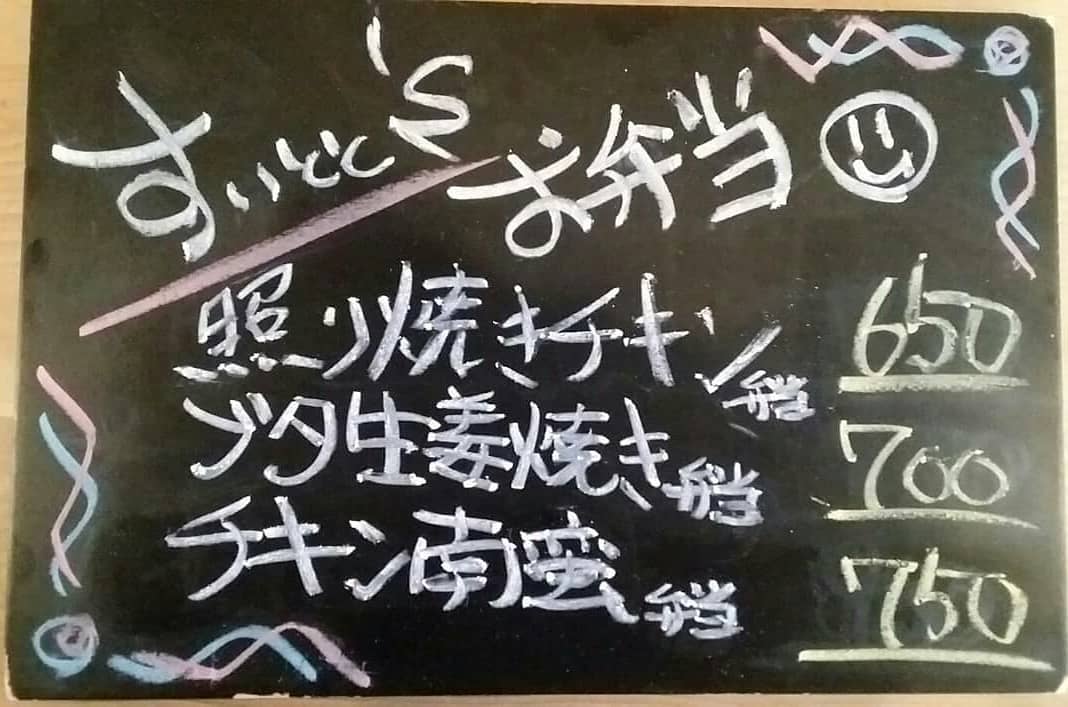 すいとと'S お弁当
照り焼きチキン弁当 650
ブタ生姜焼き弁当 700
チキン南蛮弁当 750